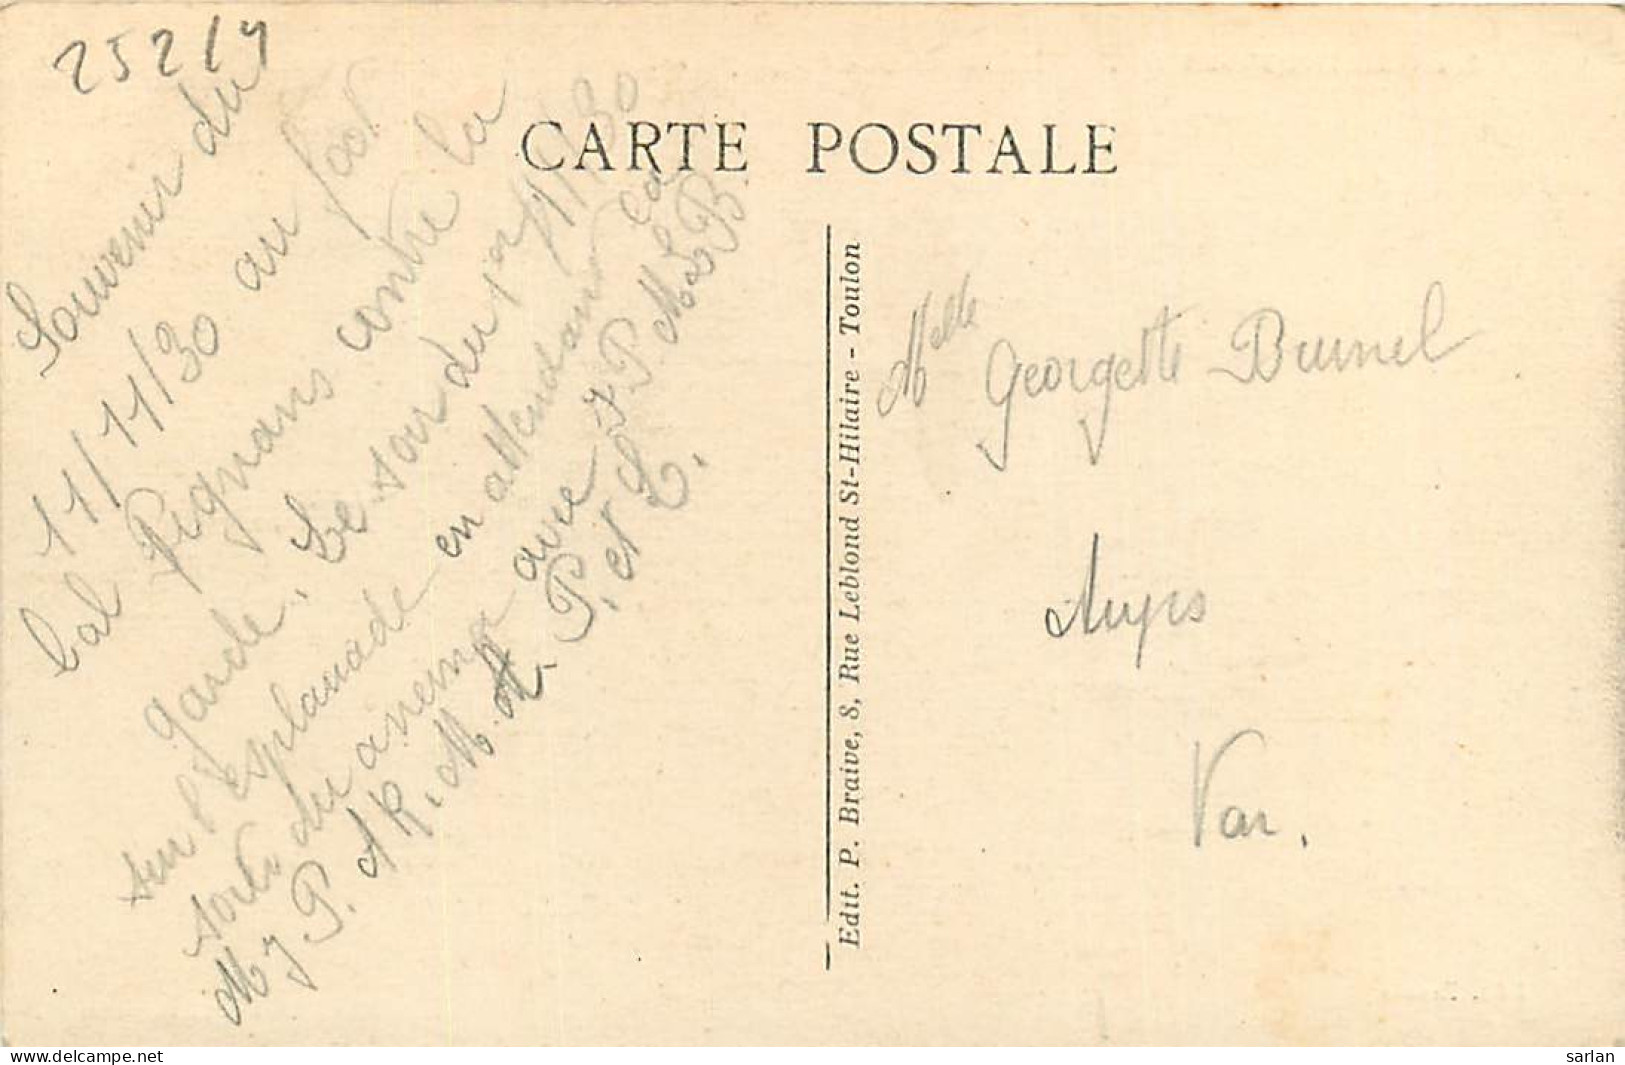 25219
Souvenir du
11/11/30 au foot
bal Pignans contre la
garde. Le soir du 11/30
sur l'esplanade en attendant la
sortie du cinema avec J P. M. L B
M J P. A R. M. A. P. et L.
P. et L.
CARTE POSTALE
Edit. P. Braive, 8, Rue Leblond St-Hilaire - Toulon
Melle Georgette Brunel
Aups
Var.
delcampe.net
sarlan